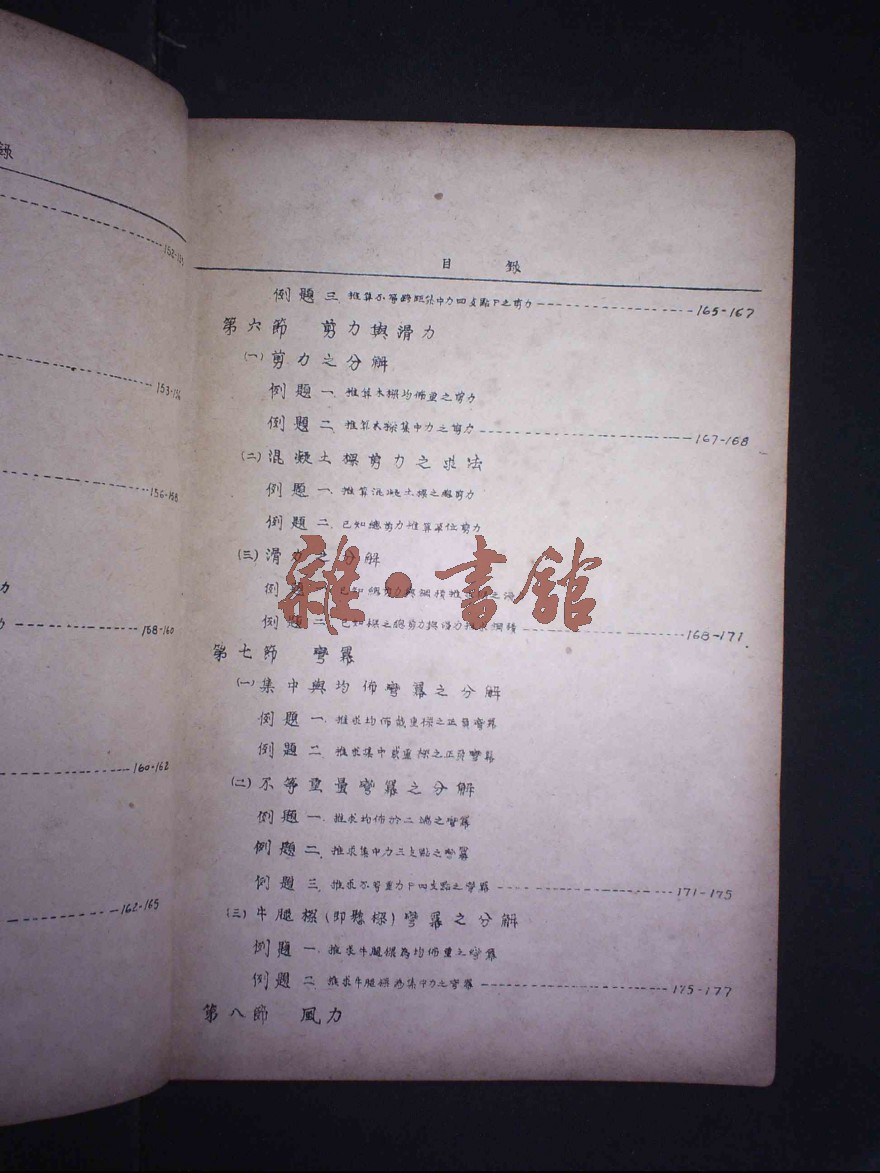 錄
152-153
153-156
156-158
力
158-160
160-162
162-165
目 錄
例題三、推算不等跨距集中力四支點下之剪力 165-167
第六節 剪力與滑力
(一)剪力之分解
例題一、推算木樑均佈重之剪力
例題二、推算木樑集中力之剪力 167-168
(二)混凝土樑剪力之求法
例題一、推算混凝土樑之總剪力
例題二、已知總剪力推算單位剪力
(三)滑力之分解
例題 已知總剪力與鋼積推 之滑
例題二、已知樑之總剪力與滑力 鋼積 168-171
第七節 彎冪
(一)集中與均佈彎冪之分解
例題一、推求均佈載重樑之正負彎冪
例題二、推求集中載重樑之正負彎冪
(二)不等重量彎冪之分解
例題一、推求均佈於二端之彎冪
例題二、推求集中力三支點之彎冪
例題三、推求不等重力下四支點之彎冪 171-175
(三)牛腿樑(即懸樑)彎冪之分解
例題一、推求牛腿樑為均佈重之彎冪
例題二、推求牛腿樑為集中力之彎冪 175-177
第八節 風力
雜·書館